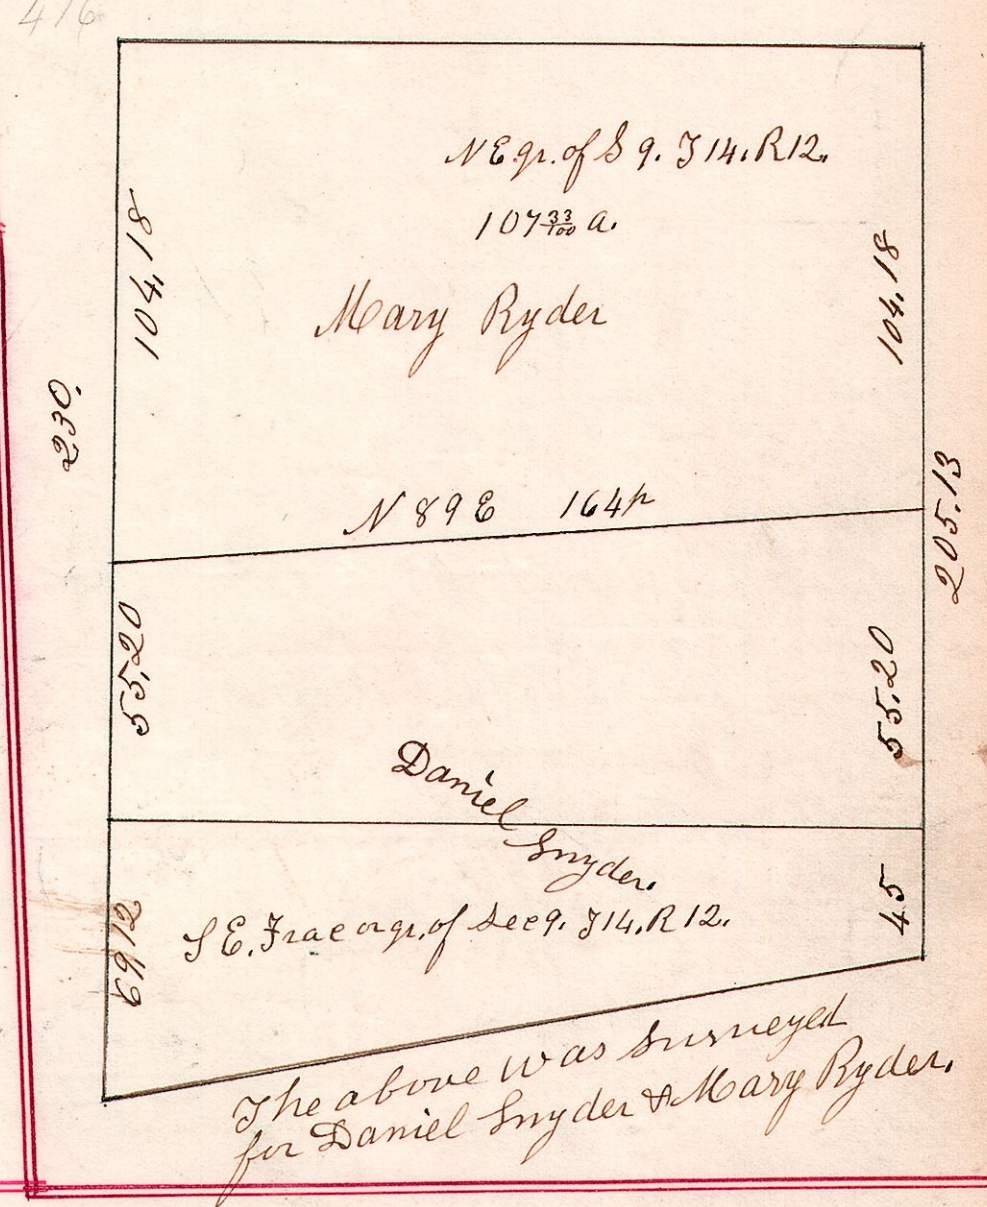 476
N E qr. of S 9. T 14. R 12.
107 33/100 a.
Mary Ryder
104,18
104,18
230.
205.13
N 89 E 164p
55,20
55.20
Daniel
Snyder.
69,12
45
S E. Frac or qr. of Sec 9. T 14. R 12.
The above was Surveyed
for Daniel Snyder & Mary Ryder.